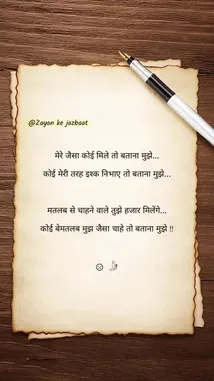 @Zayan ke jazbaat
मेरे जैसा कोई मिले तो बताना मुझे...
कोई मेरी तरह इश्क निभाए तो बताना मुझे...
मतलब से चाहने वाले तुझे हजार मिलेंगे...
कोई बेमतलब मुझ जैसा चाहे तो बताना मुझे !!